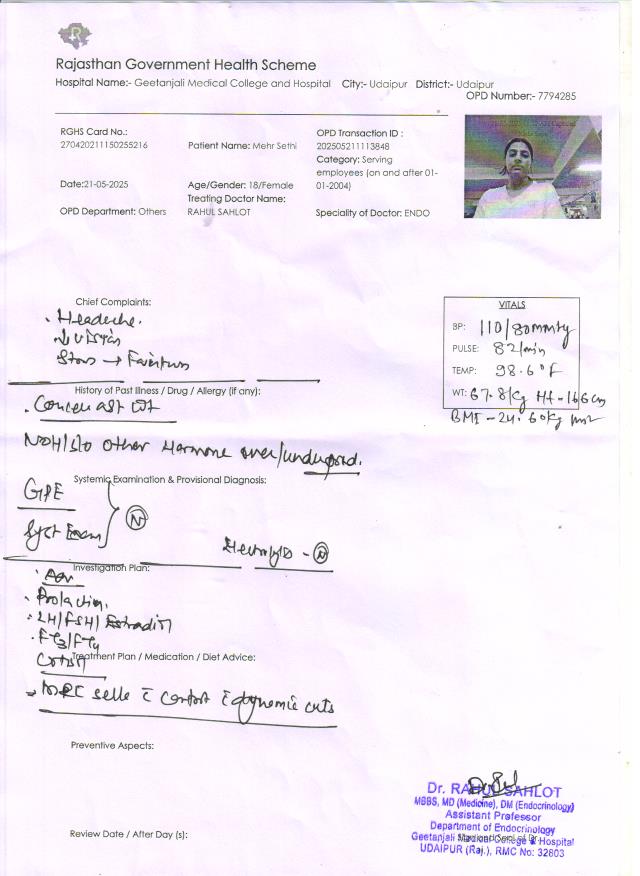 Rajasthan Government Health Scheme
Hospital Name:- Geetanjali Medical College and Hospital City:- Udaipur District:- Udaipur
OPD Number:- 7794285
RGHS Card No.:
270420211150255216
Patient Name: Mehr Sethi
OPD Transaction ID :
202505211113848
Category: Serving
employees (on and after 01-
01-2004)
Date:21-05-2025
Age/Gender: 18/Female
Treating Doctor Name:
RAHUL SAHLOT
OPD Department: Others
Speciality of Doctor: ENDO
Chief Complaints:
. Headache.
VITALS
BP: 110/80mmHg
PULSE: 82/min
TEMP: 98.6°F
WT: 67.8/kg Ht - 166 cm
BMI - 24.60kg/m2
History of Past Illness / Drug / Allergy (if any):
other Hormone over/underprod.
Systemic Examination & Provisional Diagnosis:
GPE
Syst Exam
N
Electrolytes - N
Investigation Plan:
. Prolactin.
. LH/FSH/Estradiol
. FT3/FT4
Cortisol
Treatment Plan / Medication / Diet Advice:
→ MRI sella c contrast c dynamic cuts
Preventive Aspects:
Dr. RAHUL SAHLOT
MBBS, MD (Medicine), DM (Endocrinology)
Assistant Professor
Department of Endocrinology
Geetanjali Medical College & Hospital
UDAIPUR (Raj.), RMC No: 32803
Review Date / After Day (s):